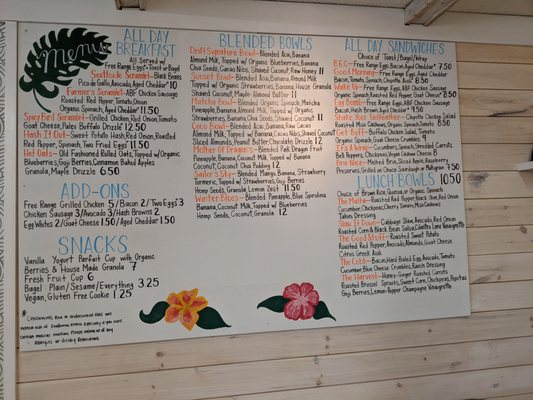 Menu
ALL DAY
BREAKFAST
All Served w/
Free Range Eggs + Toast or Bagel
Southside Scramlet - Black Beans
Pico de Gallo, Avocado, Aged Cheddar 10
Farmer's Scramlet - ABF Chicken Sausage
Roasted Red Pepper, Tomato, Onion
Organic Spinach, Aged Cheddar 11.50
Spicy Bird Scramlet - Grilled Chicken, Red Onion, Tomato
Goat Cheese, Paleo Buffalo Drizzle 12.50
Hash It Out - Sweet Potato Hash, Red Onion, Roasted
Red Pepper, Spinach, Two Fried Eggs 11.50
Hot Oats - Old Fashioned Rolled Oats, Topped w/ Organic
Blueberries, Goji Berries, Cinnamon Baked Apples
Granola, Maple Drizzle 6.50
ADD-ONS
Free Range Grilled Chicken 5 / Bacon 2 / Two Eggs 3
Chicken Sausage 3 / Avocado 3 / Hash Browns 2
Egg Whites 2 / Goat Cheese 1.50 / Aged Cheddar 1.50
SNACKS
Vanilla Yogurt Parfait Cup with Organic
Berries & House Made Granola 7
Fresh Fruit Cup 6
Bagel Plain / Sesame / Everything 3.25
Vegan, Gluten Free Cookie 1.25
BLENDED BOWLS
Drift Signature Bowl - Blended Acai, Banana
Almond Milk, Topped w/ Organic Blueberries, Banana
Chia Seeds, Cacao Nibs, Shaved Coconut, Raw Honey 11
Sunset Bowl - Blended Acai, Banana, Almond Milk
Topped w/ Organic Strawberries, Banana, House Granola
Shaved Coconut, Maple Almond Butter 11
Matcha Bowl - Blended Organic Spinach, Matcha
Pineapple, Banana, Almond Milk, Topped w/ Organic
Strawberries, Banana, Chia Seeds, Shaved Coconut 11
Coco Bowl - Blended Acai, Banana, Raw Cacao
Almond Milk, Topped w/ Banana, Cacao Nibs, Shaved Coconut
Sliced Almonds, Peanut Butter, Chocolate Drizzle 12
Mother of Dragons - Blended Pink Dragon Fruit
Pineapple, Banana, Coconut Milk, Topped w/ Banana
Coconut, Coconut Chia Pudding 12
Sailor's Sky - Blended Mango, Banana, Strawberry
Turmeric, Topped w/ Strawberries, Goji Berries
Hemp Seeds, Granola, Lemon Zest 11.50
Winter Blues - Blended Pineapple, Blue Spirulina
Banana, Coconut Milk, Topped w/ Blueberries
Hemp Seeds, Coconut, Granola 12
ALL DAY SANDWICHES
Choice of Toast / Bagel / Wrap
B.E.C - Free Range Eggs, Bacon, Aged Cheddar 7.50
Good Morning - Free Range Eggs, Aged Cheddar
Bacon, Tomato, Spinach, Avocado, Chipotle Aioli 9.50
Wake Up - Free Range Eggs, ABF Chicken Sausage
Organic Spinach, Roasted Red Pepper, Goat Cheese 8.50
Egg Bomb - Free Range Eggs, ABF Chicken Sausage
Bacon, Hash Brown, Aged Cheddar, Spicy Aioli 9.50
Shake Your Tailfeather - Chipotle Chicken Salad
Roasted Mixed Cashews, Organic Spinach, Tomato 8.50
Get Buff - Buffalo Chicken Salad, Tomato
Organic Spinach, Avocado 9.50
It's A Wrap - Cucumbers, Spinach, Shredded Carrots
Bell Peppers, Chickpeas, Hummus
Brie Nice - Melted Brie, Sliced Apple, Raspberry
Preserves, Grilled on Chaica Sourdough or Multigrain 7.50
LUNCH BOWLS 10.50
Choice of Brown Rice, Quinoa, or Organic Spinach
Cucumber, Chickpeas, Cherry Tomato
Tahini Dressing
Slaw It Down - Cabbage Slaw, Avocado, Red Onion
Roasted Corn & Black Bean Salsa, Cilantro Lime Vinaigrette
The Good Stuff - Roasted Sweet Potato
Roasted Red Pepper, Avocado, Almonds, Goat Cheese
Citrus Greek Aioli
The Cobb - Bacon, Hard Boiled Egg, Avocado, Tomato
Cucumber, Blue Cheese Crumbles, Ranch Dressing
The Harvest - Honey-Ginger Roasted Carrots
Roasted Brussel Sprouts, Sweet Corn, Chickpeas, Pepitas
Goji Berries, Lemon-Pepper Champagne Vinaigrette